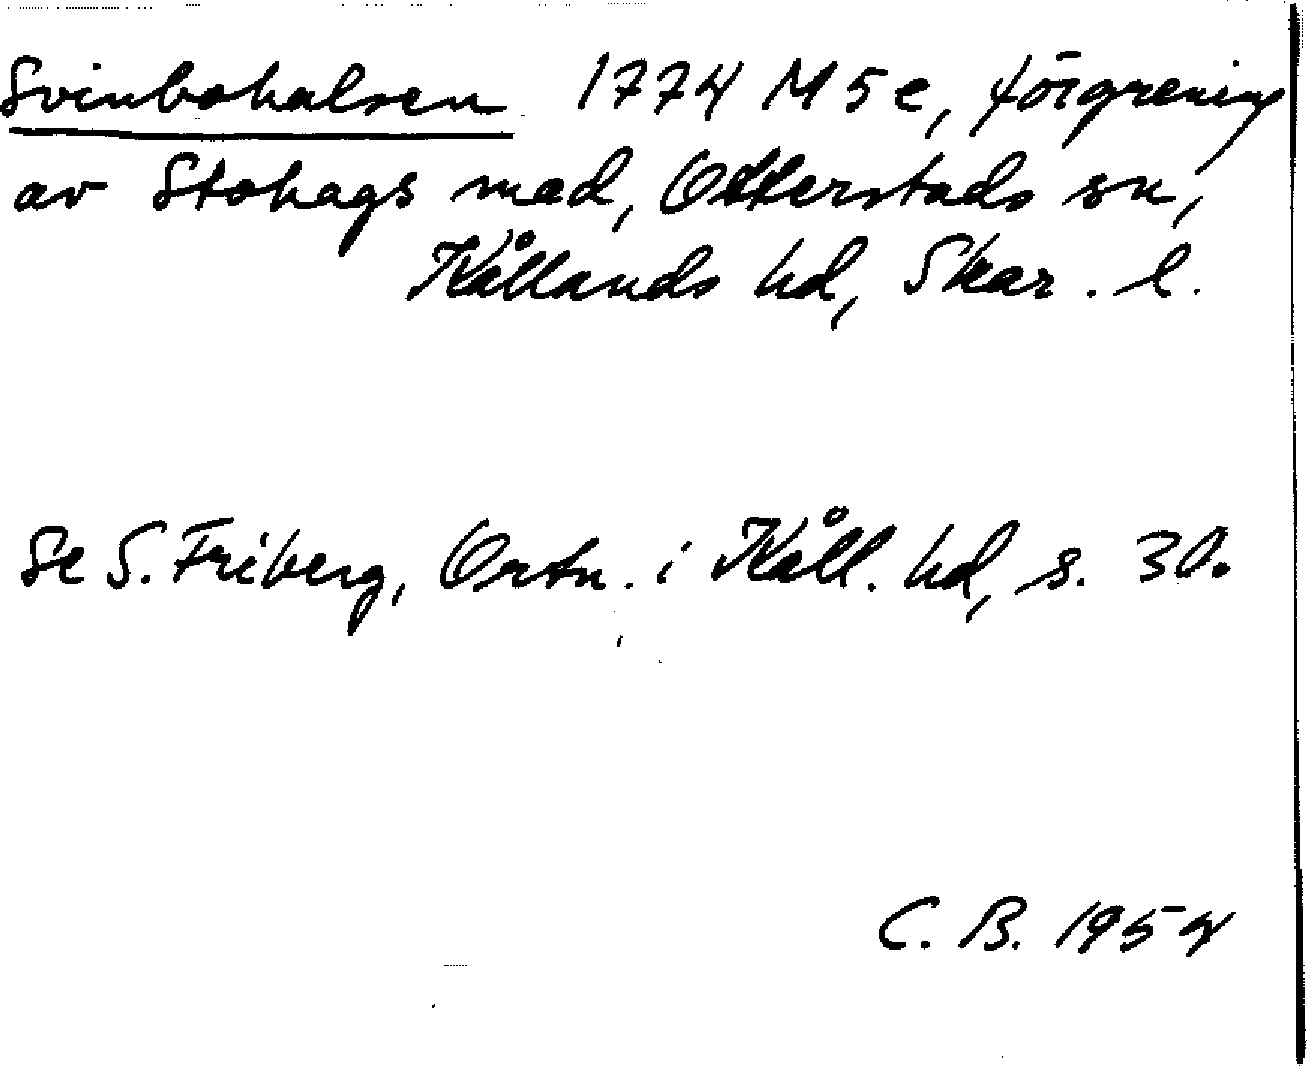 Svinbohalsen 1774 M 5 e, förgrening
av Stohags mad, Otterstads sn,
Kållands hd, Skar. l.
Se S. Friberg, Ortn. i Kåll. hd, s. 30.
C. B. 1954